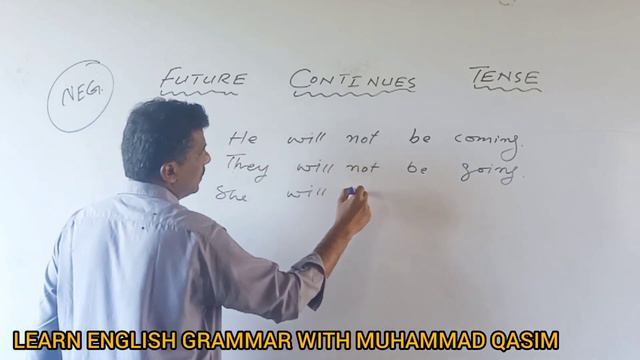 NEG.
FUTURE CONTINUES TENSE
He will not be coming.
They will not be going.
She will
LEARN ENGLISH GRAMMAR WITH MUHAMMAD QASIM